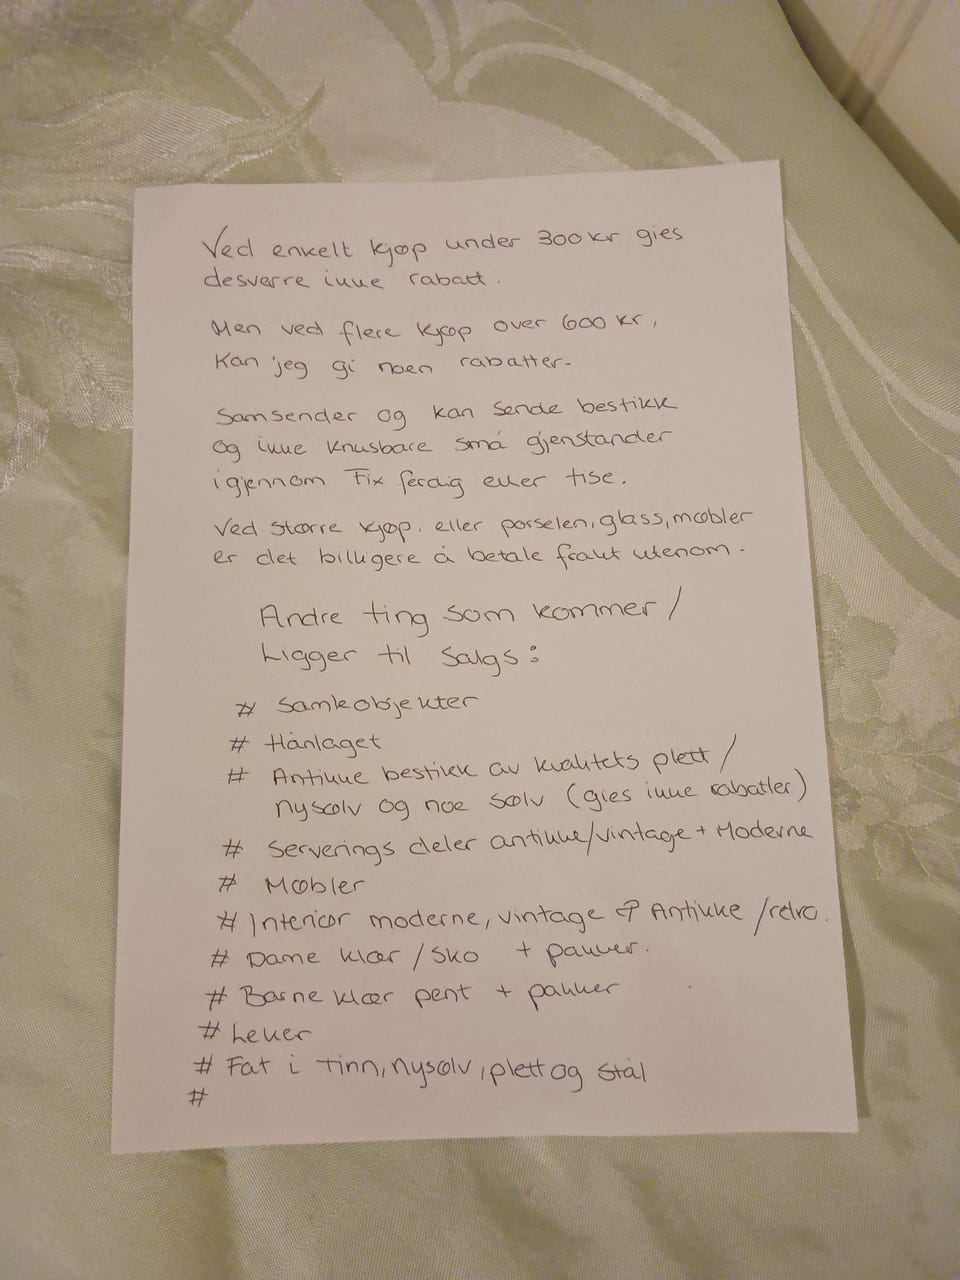 Ved enkelt kjøp under 300 kr gies
desverre ikke rabatt.
Men ved flere kjøp over 600 kr,
Kan jeg gi noen rabatter.
Samsender og kan sende bestikk
og ikke knusbare små gjenstander
igjennom Fix ferdig eller tise.
Ved større kjøp. eller porselen, glass, møbler
er det billigere å betale frakt utenom.
Andre ting som kommer /
Ligger til salgs:
# Samleobjekter
# Hånlaget
# Antikke bestikk av kvalitets plett /
nysølv og noe sølv (gies ikke rabatter)
# Serverings deler antikke/vintage + Moderne
# Møbler
# Interiør moderne, vintage & Antikke /retro.
# Dame klær / sko + pakker.
# Barne klær pent + pakker
# Leker
# Fat i tinn, nysølv, plett og stål
#